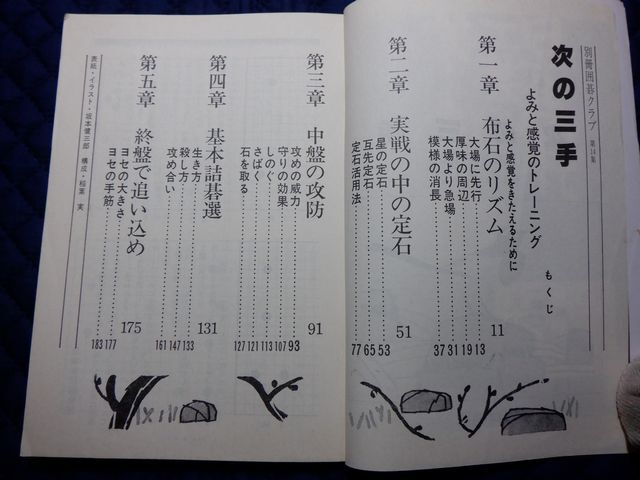 別冊囲碁クラブ 第34集
次の三手
よみと感覚のトレーニング
もくじ
よみと感覚をきたえるために
第一章 布石のリズム 11
大場に先行 13
厚味の周辺 19
大場より急場 31
模様の消長 37
第二章 実戦の中の定石 51
星の定石 53
互先定石 65
定石活用法 77
第三章 中盤の攻防 91
攻めの威力 93
守りの効果 107
しのぐ 113
さばく 121
石を取る 127
第四章 基本詰碁選 131
生き方 133
殺し方 147
攻め合い 161
第五章 終盤で追い込め 175
ヨセの大きさ 177
ヨセの手筋 183
表紙・イラスト・坂本健三郎 構成・稲葉 実